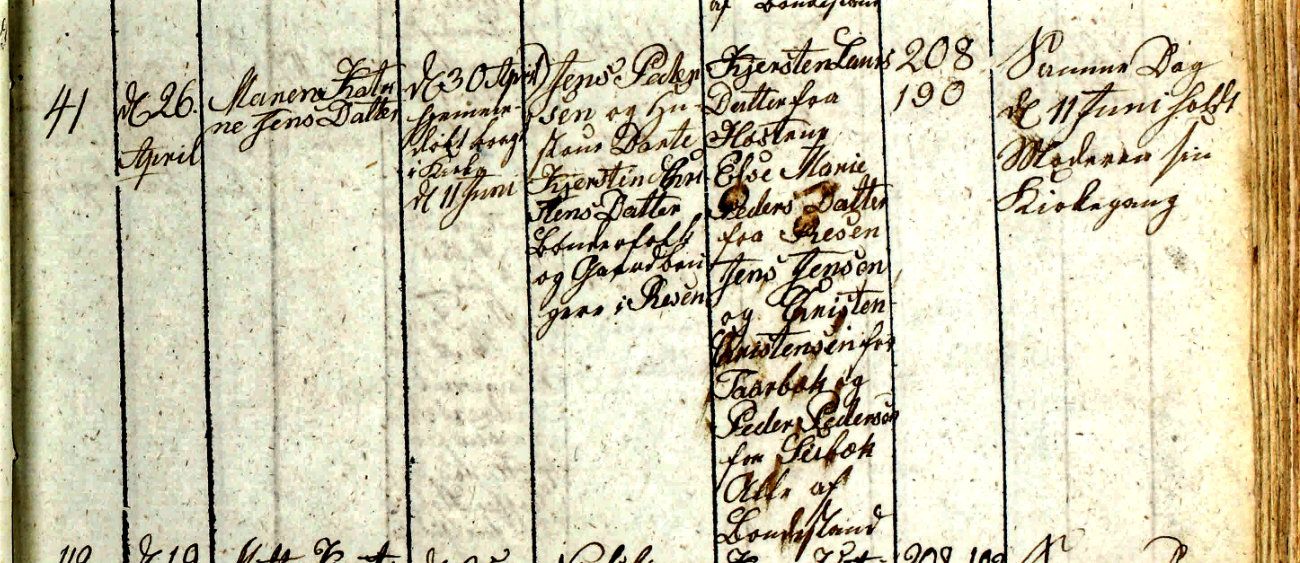 af Bondestand
41
d 26.
April
Maren Katri
ne Jens Datter
d 30 April
hjemme-
døbt bragt
i Kirke
d 11 Juni
Jens Peder
sen og Hu-
strue Dorte
Kjerstine Chri
stens Datter
Bønderfolk
og Gaardberi
gere i Resen
Kjersten Laurs
Datter fra
Høstrup
Else Marie
Peders Datter
fra Resen
Jens Jensen
og Christen
Christensen fra
Taarbæk og
Peder Pedersen
fra Seibæk
Alle af
Bondestand
208
190
Samme Dag
d 11 Juni holdt
Moderen sin
Kirkegang
d 19
208 192